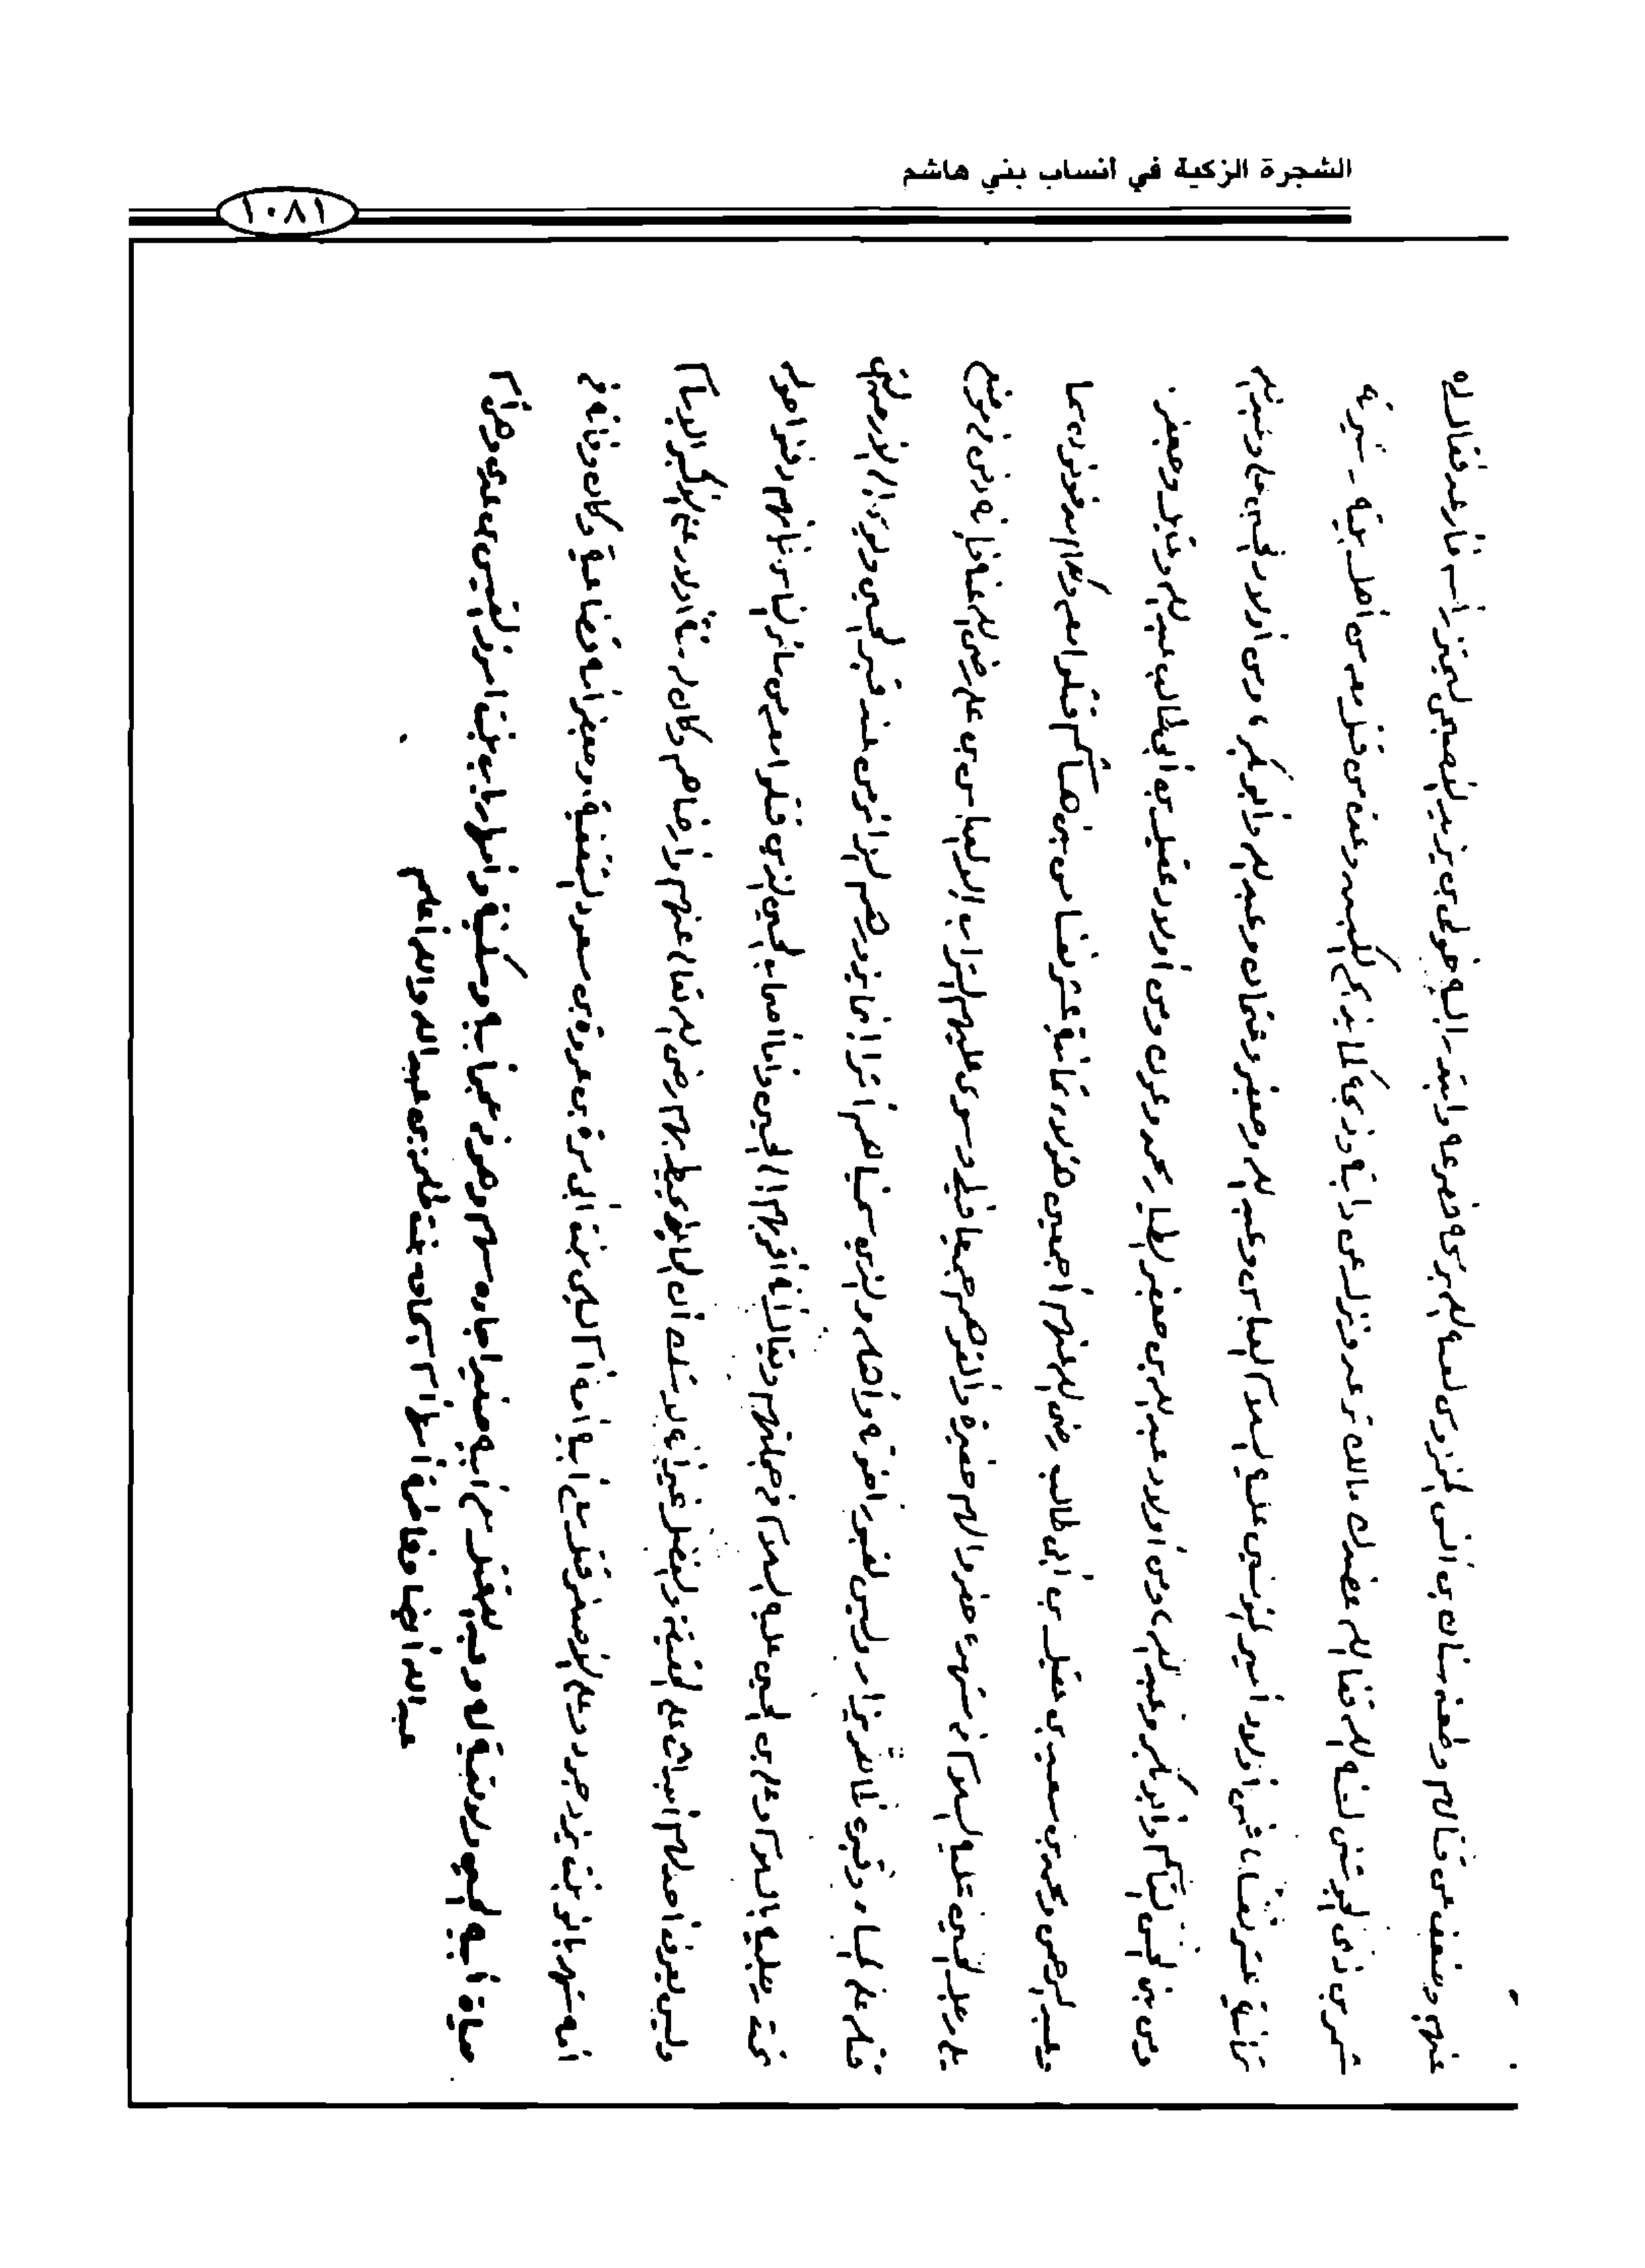 الشجرة الزكية في أنساب بني هاشم
١٠٨١
عنهم وضعف عن قتالهم وطعنه سنان بن أنس لعنه الله برمحه فصرعه وابتدر إليه خولي بن يزيد الأصبحي ليحتز رأسه فأرعد فقال له
شمر بن ذي الجوشن لعنه الله فت الله عضدك مالك ترعد ونزل عن دابته وذبحه كما يذبح الكبش وعدة من قتل معه من أهل بيته وعشيرته
ثمانية عشر نفسا فمن أولاد أمير المؤمنين عليه السلام العباس وعبد الله وجعفر وعثمان وعبيد الله وأبو بكر ومن أولاد الحسين علي وعبد الله
ومن بني الحسن القاسم وأبو بكر وعبد الله ومن أولاد عبد الله بن جعفر الطيار محمد وعون ومن أولاد عقيل بن أبي طالب عبد الله وعقيل وجعفر
وعبد الرحمن ومحمد بن سعيد بن عقيل بن أبي طالب رضي الله عنهم أجمعين فهؤلاء ثمانية عشر نفسا من بني هاشم قتلوا معه وكلهم مدفونون مما
يلي رجل الحسين عليه السلام في مشهده حفروا لهم حفيرة وألقوهم جميعا فيها وسوى عليهم التراب إلا العباس بن علي رضي الله عنه فإنه دفن في موضع
قتله على وقبره ظاهر يزار وليس لقبور إخوته وأهله والذين سميناهم أثر إنما يزورهم الزائر من عند قبر الحسين ويومئ إلى الأرض التي
نحو رجليه بالسلام وعلي بن الحسين عليه السلام في جملتهم ويقال أنه أقربهم إلى الحسين وأما أصحاب الحسين الذين قتلوا معه من سائر الناس فإنهم دفنوا حوله
وليس يعرف أحد لهم أجداثا على الحقيقة والتفصيل غير أنه لا شك أن الحائر محيط بهم رضي الله تعالى عنهم وأرضاهم وكان له ستة أولاد علي الأكبر الإمام
أمه شهربانو بنت يزدجرد وعلي الأصغر قتل مع أبيه أمه أم ليلى بنت أبي مرة بن عروة بن مسعود الثقفية وجعفر أمه قضاعية وكان وفاته في
حياة أبيه الحسين لا بقية له وعبد الله قتل مع أبيه صغيرا جاءه سهم وهو في أبيه وسكينة وأمها رباب بنت امرئ القيس بن عدي وهي أم
عبد الله أيضا وفاطمة أمها أم إسحاق بنت طلحة بن عبد الله والله أعلم